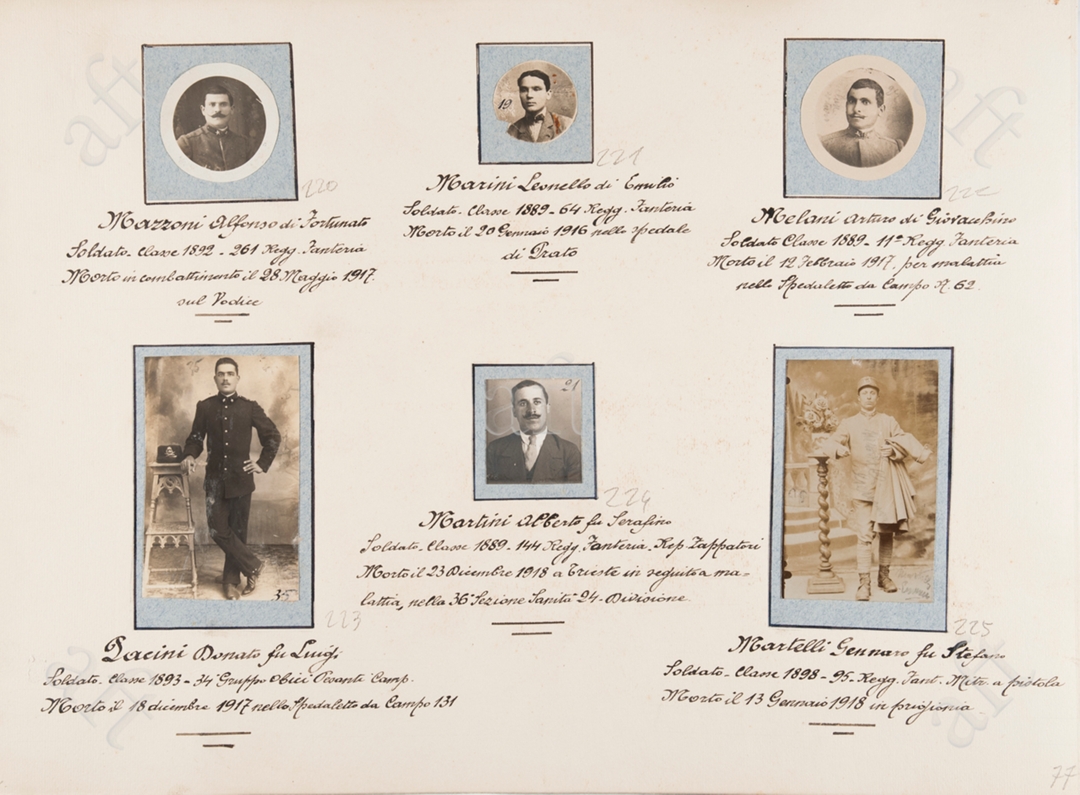 220
Mazzoni Alfonso di Fortunato
Soldato - Classe 1892 - 261 Regg. Fanteria
Morto in combattimento il 28 Maggio 1917.
sul Vodice
19
221
Marini Leonello di Emilio
Soldato - Classe 1889 - 64 Regg. Fanteria
Morto il 20 Gennaio 1916 nello spedale
di Prato
222
Melani Arturo di Giovacchino
Soldato Classe 1889 - 11º Regg Fanteria
Morto il 12 Febbraio 1917, per malattia
nello Spedaletto da Campo N. 62.
35
223
Pacini Donato fu Luigi
Soldato - Classe 1893 - 34 Gruppo Obici Pesanti Camp.
Morto il 18 dicembre 1917 nello Spedaletto da Campo 131
21
224
Martini Alberto fu Serafino
Soldato - Classe 1889 - 144 Regg. Fanteria - Rep Zappatori
Morto il 23 Dicembre 1918 a Trieste in seguito a ma-
lattia, nella 36ª Sezione Sanità 24 - Divisione
225
Martelli Gennaro fu Stefano
Soldato - Classe 1898 - 95 - Regg. Fant. Mitr. a pistola
Morto il 13 Gennaio 1918 in prigionia
77
aft
aft
aft
aft